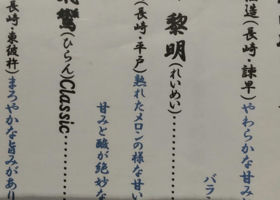 造(長崎・諫早)やわらかな甘み
バラン
黎明(れいめい)・・・・・・・・
(長崎・平戸)熟れたメロンの様な甘い
甘みと酸が絶妙な
鸞(ひらん)Classic・・・・・・
(長崎・東彼杵)まろやかな旨みがあり